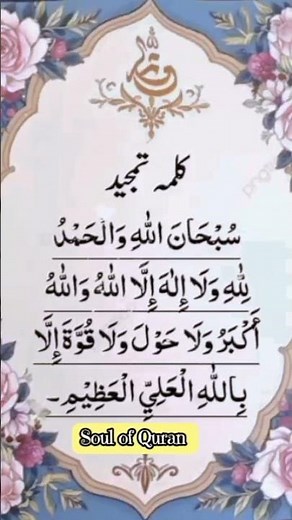 کلمہ تمجید
سُبْحَانَ اللهِ وَالْحَمْدُ
لِلّٰهِ وَلَا إِلٰهَ إِلَّا اللهُ وَاللهُ
أَكْبَرُ وَلَا حَوْلَ وَلَا قُوَّةَ إِلَّا
بِاللّٰهِ الْعَلِيِّ الْعَظِيْمِ۔
Soul of Quran